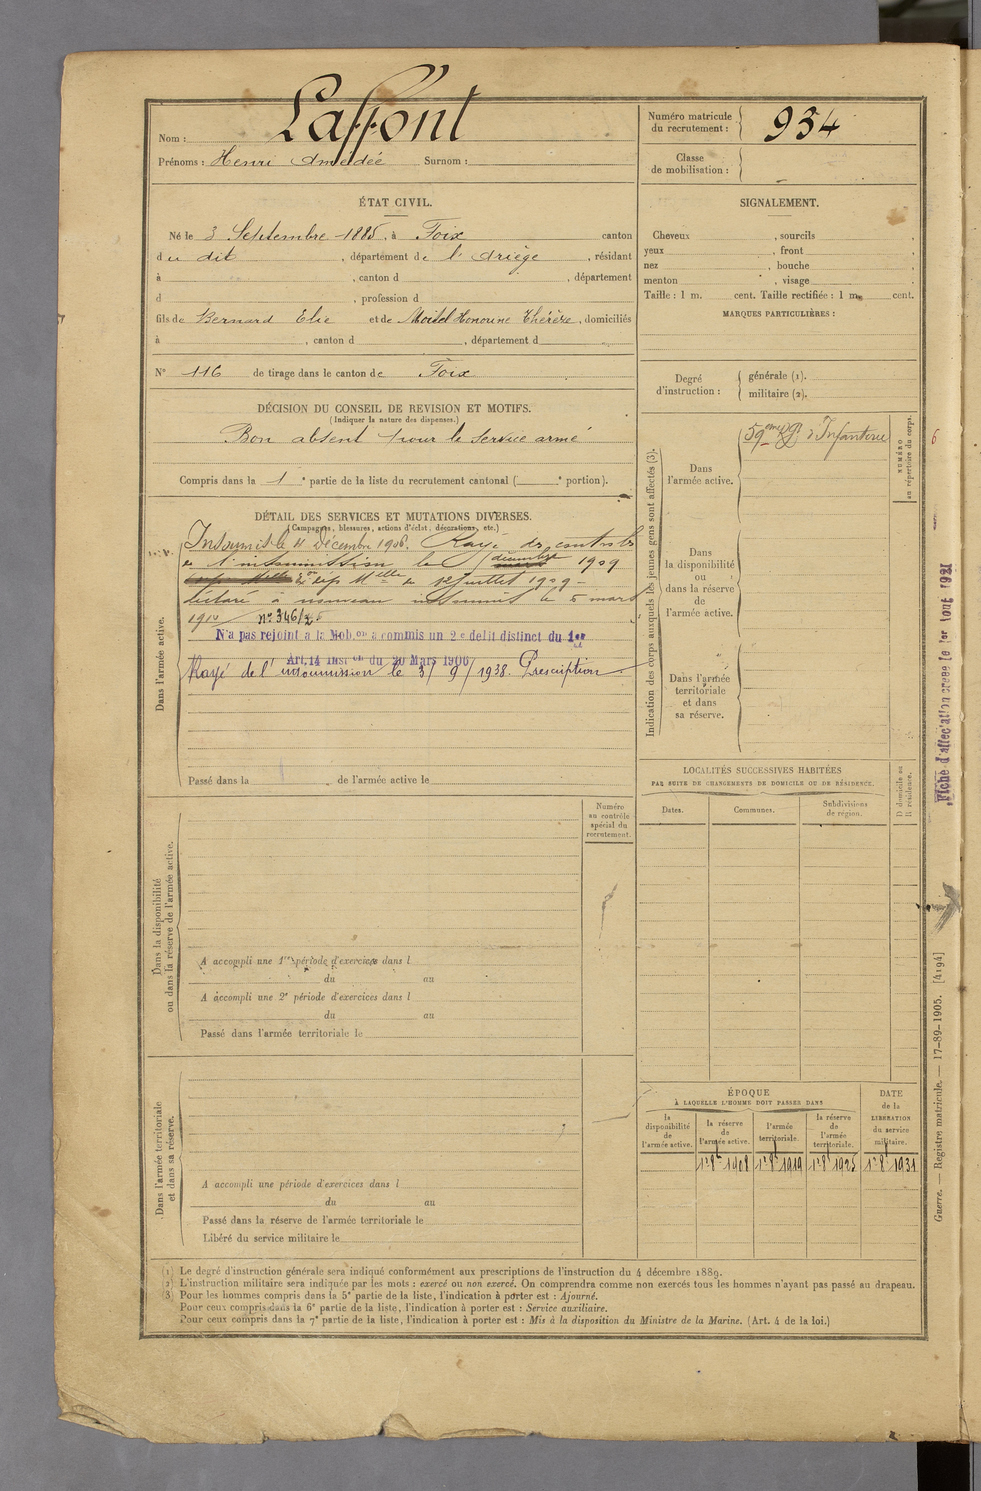 Nom : Laffont
Prénoms : Henri Amédée Surnom :
Numéro matricule du recrutement : 934
Classe de mobilisation :
ÉTAT CIVIL.
Né le 3 Septembre 1885, à Foix canton
du dit, département de l'Ariège, résidant
à , canton d , département
d , profession d
fils de Bernard Elie et de Honorine Thérèze, domiciliés
à , canton d , département d
N° 116 de tirage dans le canton de Foix
DÉCISION DU CONSEIL DE REVISION ET MOTIFS.
(Indiquer la nature des dispenses.)
Bon absent pour le service armé
Compris dans la 1e partie de la liste du recrutement cantonal ( e portion).
SIGNALEMENT.
Cheveux , sourcils ,
yeux , front ,
nez , bouche
menton , visage
Taille : 1 m. cent. Taille rectifiée : 1 m. cent.
MARQUES PARTICULIÈRES :
Degré d'instruction : générale (1).
militaire (2).
DÉTAIL DES SERVICES ET MUTATIONS DIVERSES.
(Campagnes, blessures, actions d'éclat, décorations, etc.)
Dans l'armée active.
Insoumis le 11 Décembre 1906. Rayé des controles
de l'insoumission le décembre 1909
Mlle du 12 Juillet 1909 -
déclaré à nouveau insoumis le 5 mars
1910 n° 346/25
N'a pas rejoint à la Mob.on a commis un 2e delit distinct du 1er
Art.14 Inst on du 20 Mars 1906
Rayé de l'insoumission le 3/9/1938. Prescription
Passé dans la de l'armée active le
Indication des corps auxquels les jeunes gens sont affectés (3).
NUMÉRO au répertoire du corps.
Dans l'armée active.
59eme Rgt d'Infanterie
6
Dans la disponibilité ou dans la réserve de l'armée active.
Dans l'armée territoriale et dans sa réserve.
Fiche d'affectation créée le 1er Aout 1921
LOCALITÉS SUCCESSIVES HABITÉES
PAR SUITE DE CHANGEMENTS DE DOMICILE OU DE RÉSIDENCE.
Dates. Communes. Subdivisions de région. D domicile ou R résidence.
Dans la disponibilité ou dans la réserve de l'armée active.
Numéro au contrôle spécial du recrutement.
A accompli une 1re période d'exercices dans l
du au
A accompli une 2e période d'exercices dans l
du au
Passé dans l'armée territoriale le
Dans l'armée territoriale et dans sa réserve.
A accompli une période d'exercices dans l
du au
Passé dans la réserve de l'armée territoriale le
Libéré du service militaire le
ÉPOQUE
À LAQUELLE L'HOMME DOIT PASSER DANS
la disponibilité de l'armée active.
la réserve de l'armée active.
l'armée territoriale.
la réserve de l'armée territoriale.
DATE de la LIBÉRATION du service militaire.
1r 8bre 1908 1r 8bre 1919 1r 8bre 1925 1r 8bre 1931
Guerre. — Registre matricule. — 17-89-1905. [4194]
(1) Le degré d'instruction générale sera indiqué conformément aux prescriptions de l'instruction du 4 décembre 1889.
(2) L'instruction militaire sera indiquée par les mots : exercé ou non exercé. On comprendra comme non exercés tous les hommes n'ayant pas passé au drapeau.
(3) Pour les hommes compris dans la 5e partie de la liste, l'indication à porter est : Ajourné.
Pour ceux compris dans la 6e partie de la liste, l'indication à porter est : Service auxiliaire.
Pour ceux compris dans la 7e partie de la liste, l'indication à porter est : Mis à la disposition du Ministre de la Marine. (Art. 4 de la loi.)